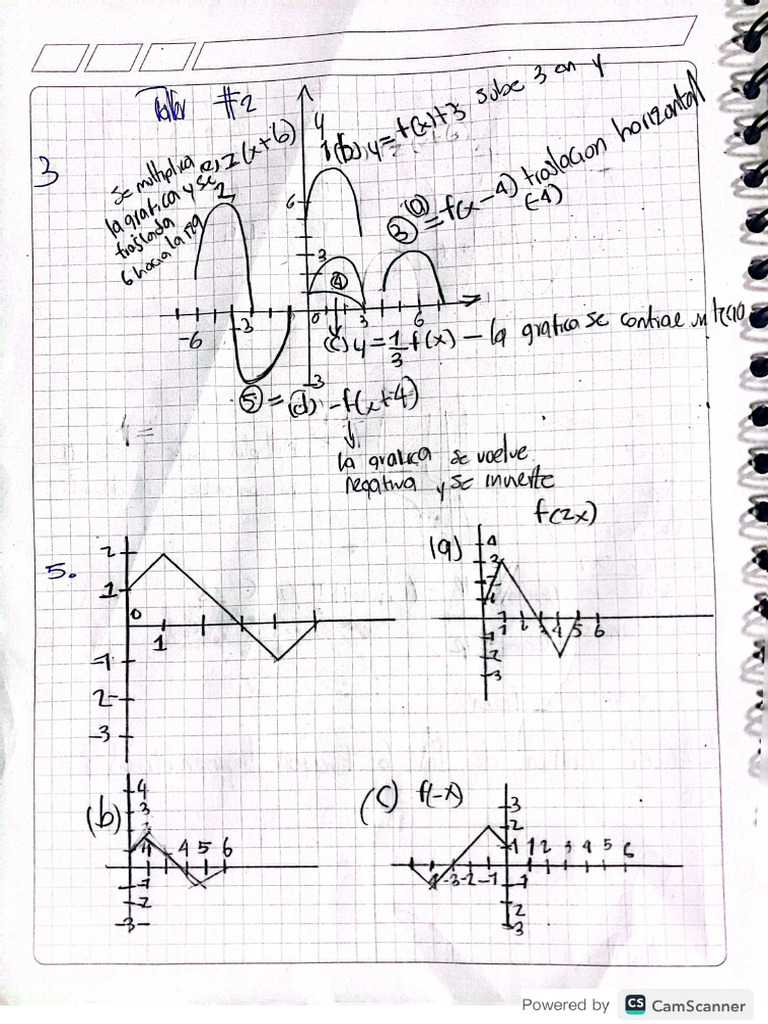 Taller #2
3
Se multiplica
la grafica y se
traslada
6 hacia la izq
2 (x+6)
2
y
1 (b) y = f(x)+3 sube 3 en y
3 (a) = f(x-4) traslacion horizontal
(-4)
6
3
4
-6 -3 0 3 6
(c) y = 1/3 f(x) - la grafica se contrae
-3
5 = (d) -f(x+4)
la grafica se vuelve
negativa y se invierte
f(2x)
5.
2
1
0
1
-1
2-
-3
(a)
4
3
2
1
1 2 3 4 5 6
-1
-2
-3
(b)
4
3
2
1 4 5 6
-1
-2
-3
(c) f(-x)
3
2
1 1 2 3 4 5 6
-4 -3 -2 -1
-1
2
3
Powered by CS CamScanner